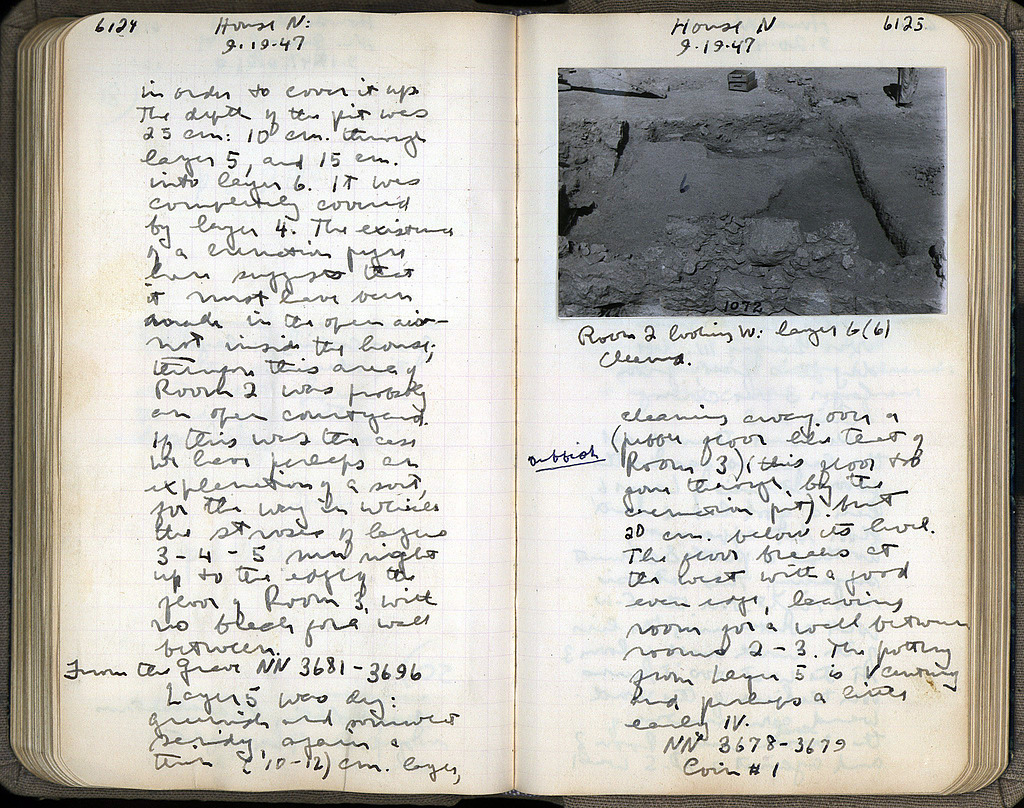 6124
House N:
9-19-47
in order to cover it up
The depth of the pit was
25 cm: 10 cm. through
layer 5, and 15 cm.
into layer 6. It was
completely covered
by layer 4. The existence
of a cremation pyre
here suggests that
it must have been
made in the open air –
not inside the house;
this area of
Room 2 was probably
an open courtyard.
If this was the case
we have perhaps an
explanation, of a sort,
for the way in which
the stroses of layers
3 - 4 - 5 run right
up to the edge of the
floor of Room 3, with
no break for a wall
between.
From the Grave NN 3681 - 3696
Layer 5 was dug:
greenish and somewhat
sandy, again a
thin (10-12) cm. layer,
House N
6125
9-19-47
1072
Room 2 looking W: layer 6 (6)
cleaned.
cleaning away over a
rubbish
(pebble floor like that of
Room 3) (this floor too
gone through, by the
cremation pit) but
20 cm. below its level.
The floor breaks at
the west with a good
even edge, leaving
room for a wall between
rooms 2 - 3. The pottery
from Layer 5 is V century
and perhaps a little
early IV.
NN 3678-3679
Coin #1